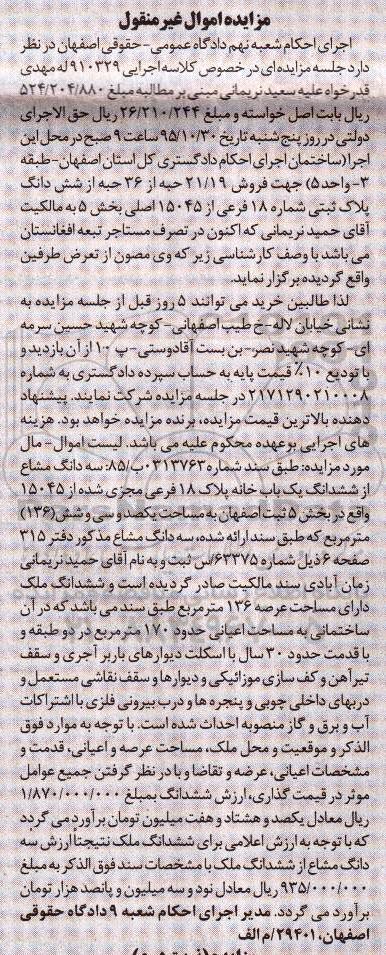 مزایده اموال غیر منقول
اجرای احکام شعبه نهم دادگاه عمومی-حقوقی اصفهان در نظر
دارد جلسه مزایده ای در خصوص کلاسه اجرایی ۹۱۰۳۲۹ له مهدی
قدر خواه علیه سعید نریمانی مبنی بر مطالبه مبلغ ۵۲۴/۲۰۴/۸۸۰
ریال بابت اصل خواسته و مبلغ ۲۶/۲۱۰/۲۴۴ ریال حق الاجرای
دولتی در روز پنج شنبه تاریخ ۹۵/۱۰/۳۰ ساعت ۹ صبح در محل این
اجرا (ساختمان اجرای احکام دادگستری کل استان اصفهان-طبقه
۳-واحد ۵) جهت فروش ۲۱/۱۹ حبه از ۳۶ حبه از شش دانگ
پلاک ثبتی شماره ۱۸ فرعی از ۱۵۰۴۵ اصلی بخش ۵ به مالکیت
آقای حمید نریمانی که اکنون در تصرف مستاجر تبعه افغانستان
می باشد با وصف کارشناسی زیر که وی مصون از تعرض طرفین
واقع گردیده برگزار نماید.
لذا طالبین خرید می توانند ۵ روز قبل از جلسه مزایده به
نشانی خیابان لاله-خ طیب اصفهانی-کوچه شهید حسین سرمه
ای-کوچه شهید نصر-بن بست آقادوستی-پ ۱۰ از آن بازدید و
با تودیع ۱۰٪ قیمت پایه به حساب سپرده دادگستری به شماره
۲۱۷۱۲۹۰۲۱۰۰۰۸ در جلسه مزایده شرکت نمایند. پیشنهاد
دهنده بالاترین قیمت مزایده، برنده مزایده خواهد بود. هزینه
های اجرایی بر عهده محکوم علیه می باشد. لیست اموال-مال
مورد مزایده: طبق سند شماره ۰۳۱۳۷۶۳ب/۸۵: سه دانگ مشاع
از ششدانگ یک باب خانه پلاک ۱۸ فرعی مجزی شده از ۱۵۰۴۵
واقع در بخش ۵ ثبت اصفهان به مساحت یکصد و سی و شش (۱۳۶)
متر مربع که طبق سند ارائه شده، سه دانگ مشاع مذکور دفتر ۳۱۵
صفحه ۶ ذیل شماره ۶۳۳۷۵/س ثبت و به نام آقای حمید نریمانی
زمان آبادی سند مالکیت صادر گردیده است و ششدانگ ملک
دارای مساحت عرصه ۱۳۶ متر مربع طبق سند می باشد که در آن
ساختمانی به مساحت اعیانی حدود ۱۷۰ متر مربع در دو طبقه و
با قدمت حدود ۳۰ سال با اسکلت دیوارهای باربر آجری و سقف
تیرآهن و کف سازی موزائیکی و دیوارها و سقف نقاشی مستعمل و
دربهای داخلی چوبی و پنجره ها و درب بیرونی فلزی با اشتراکات
آب و برق و گاز منصوبه احداث شده است. با توجه به موارد فوق
الذکر و موقعیت و محل ملک، مساحت عرصه و اعیانی، قدمت و
مشخصات اعیانی، عرضه و تقاضا و با در نظر گرفتن جمیع عوامل
موثر در قیمت گذاری، ارزش ششدانگ بمبلغ ۱/۸۷۰/۰۰۰/۰۰۰
ریال معادل یکصد و هشتاد و هفت میلیون تومان برآورد می گردد
که با توجه به ارزش اعلامی برای ششدانگ ملک نتیجتا ارزش سه
دانگ مشاع از ششدانگ ملک با مشخصات سند فوق الذکر به مبلغ
۹۳۵/۰۰۰/۰۰۰ ریال معادل نود و سه میلیون و پانصد هزار تومان
برآورد می گردد. مدیر اجرای احکام شعبه ۹ دادگاه حقوقی
اصفهان، ۲۹۴۰۱/م الف